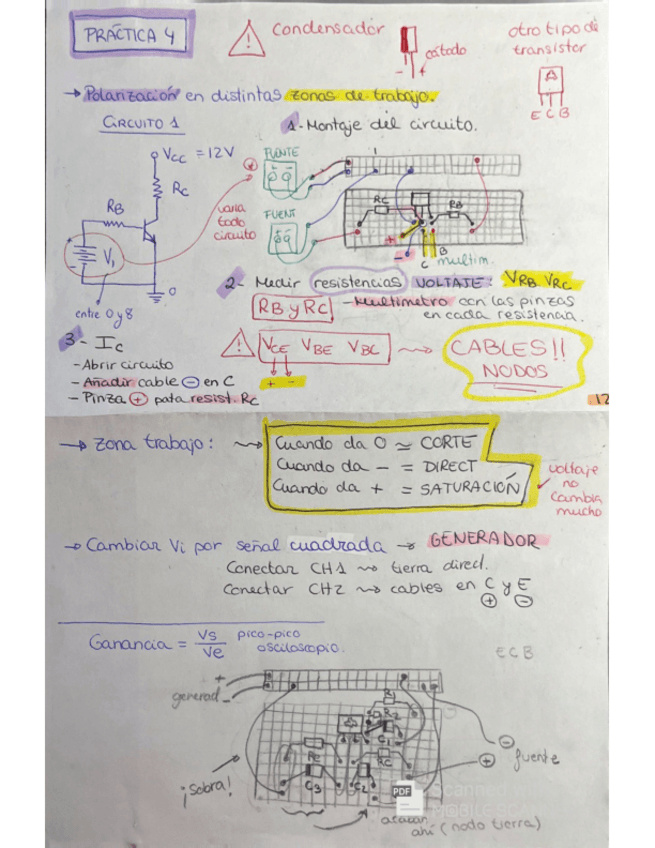 PRÁCTICA 4
Condensador
cátodo
- +
otro tipo de
transistor
A
E C B
→ Polarización en distintas zonas de trabajo.
CIRCUITO 1
1- Montaje del circuito.
Vcc = 12V
Rc
RB
V1
+
-
0
entre 0 y 8
varía
todo
circuito
FUENTE
FUENT
RC
RB
+
-
C
B
multim.
2- Medir resistencias VOLTAJE: VRB VRC
RB y RC - Multímetro con las pinzas
en cada resistencia.
3- Ic
- Abrir circuito
- Añadir cable ⊖ en C
- Pinza ⊕ pata resist. Rc
VCE VBE VBC
+ -
CABLES!!
NODOS
12
→ Zona trabajo:
Cuando da 0 ≃ CORTE
Cuando da - = DIRECT
Cuando da + = SATURACIÓN
voltaje
no
cambia
mucho
→ Cambiar Vi por señal cuadrada → GENERADOR
Conectar CH1 → tierra direct.
Conectar CH2 → cables en C y E
⊕ ⊖
Ganancia = Vs/Ve pico-pico
osciloscopio.
E C B
+
generad -
R1
R2
A
C1
RE
RC
C3
C2
⊖
⊕ fuente
¡Sobra!
PDF
Scanned
MOBILE
atacan
ahí (nodo tierra)